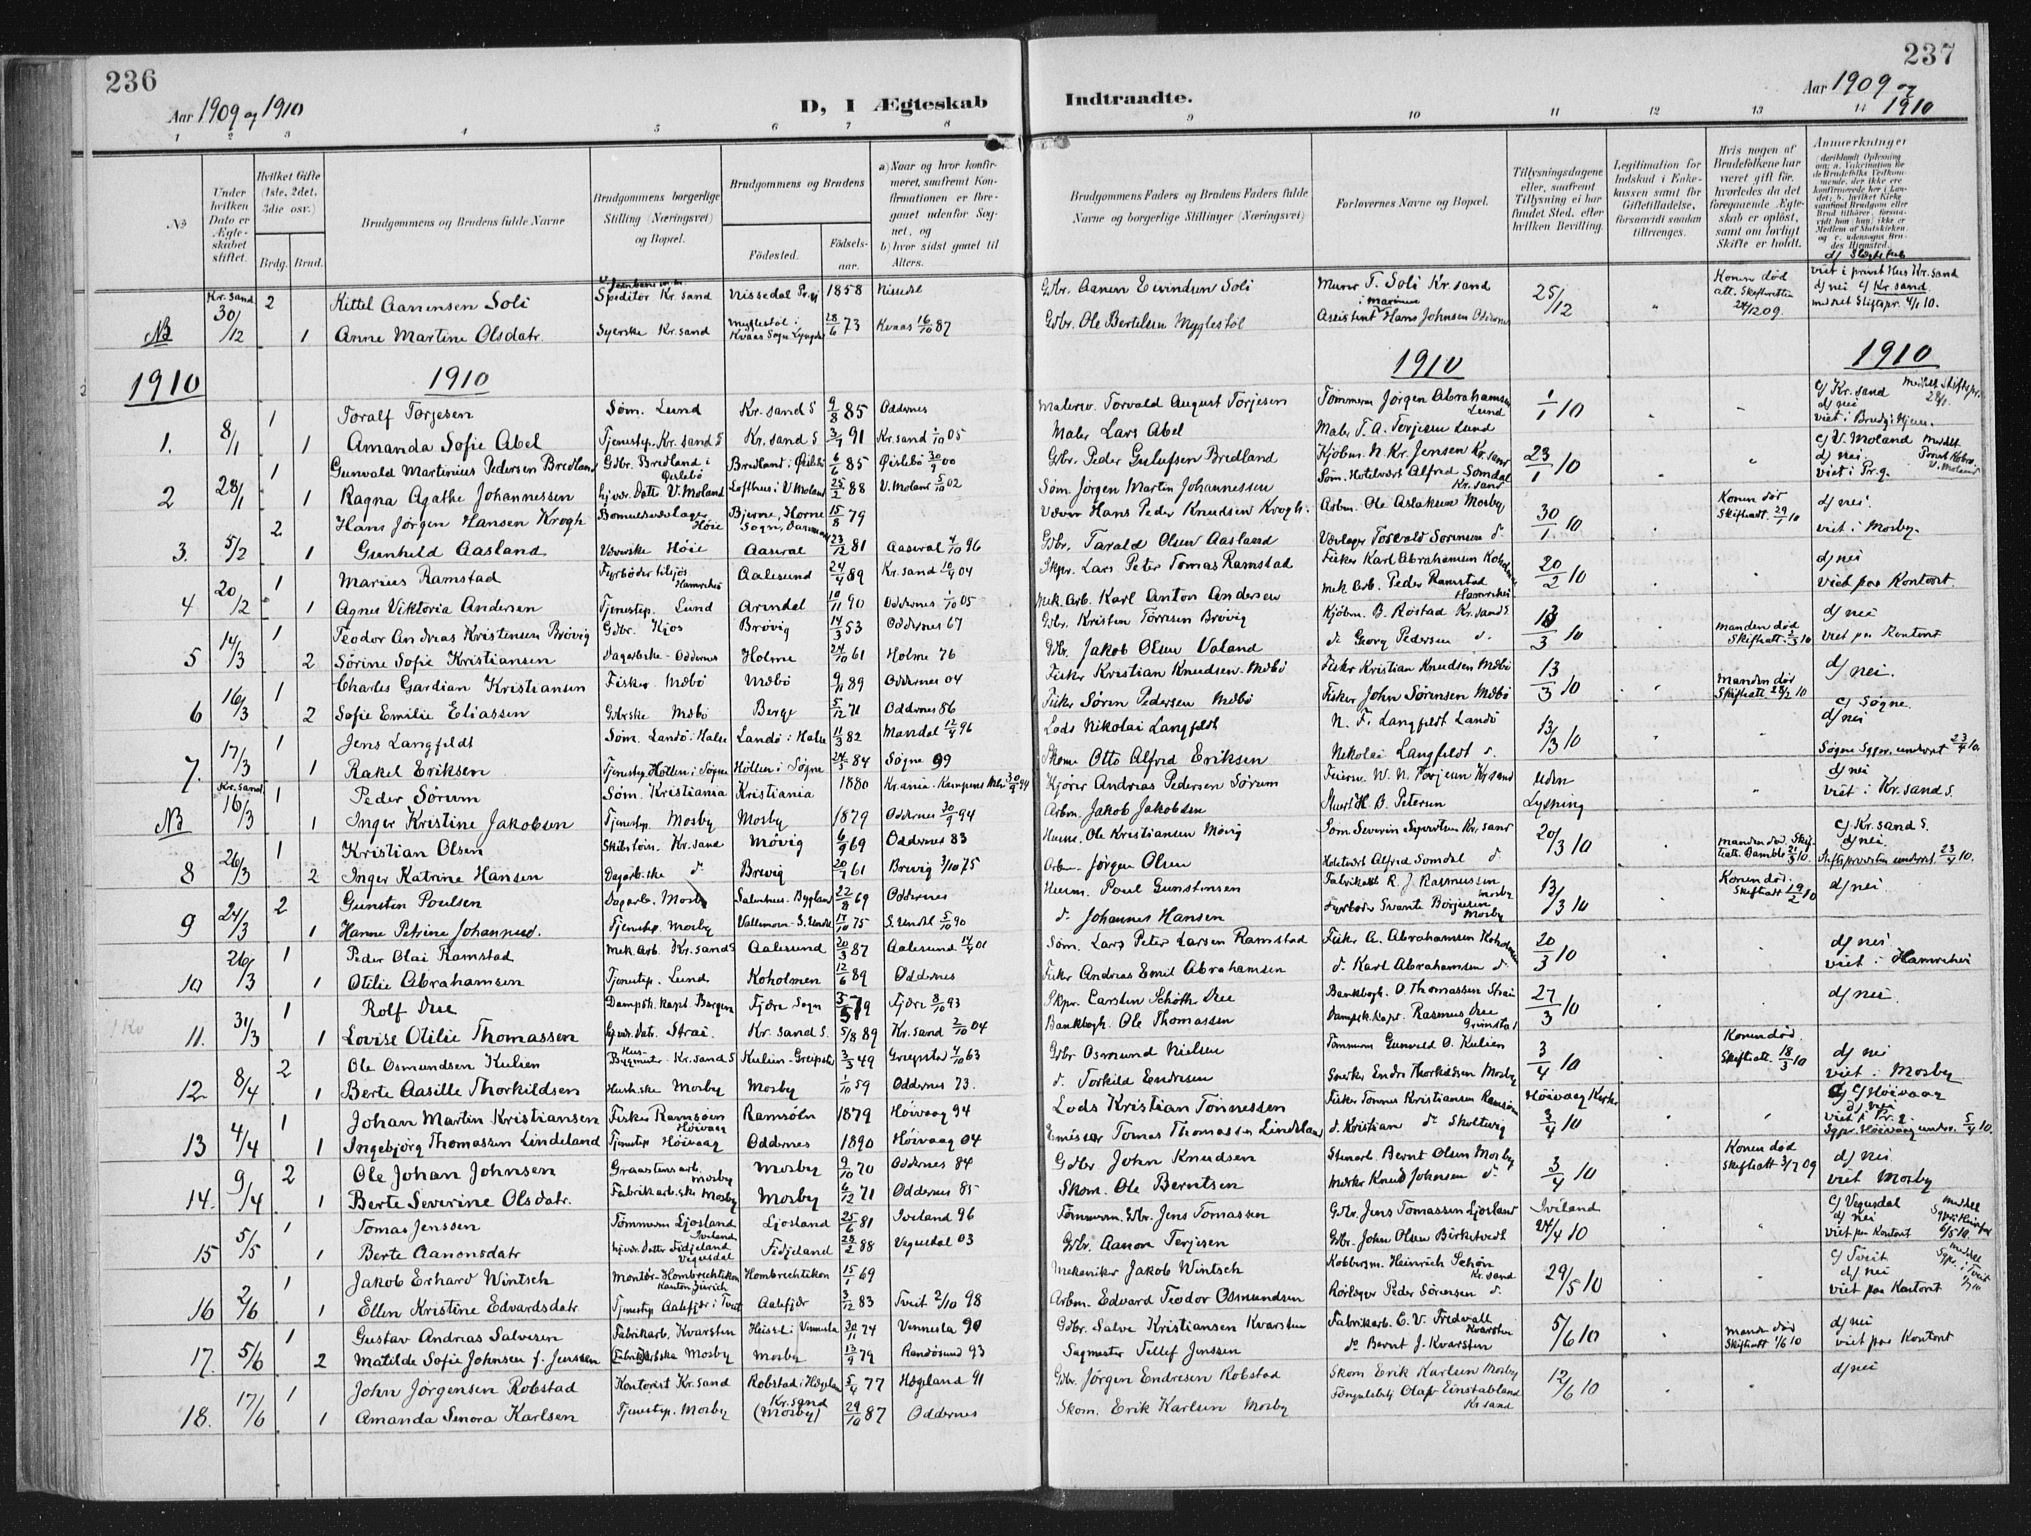 236
237
Aar 1909 og 1910
D, I Ægteskab Indtraadte.
Aar 1909 og 1910
1 2 3 4 5 6 7 8 9 10 11 12 13 14
No
Under hvilken Dato er Ægteskabet stiftet.
Hvilket Gifte (1ste, 2det, 3die osv.)
Brdg. Brud.
Brudgommens og Brudens fulde Navne
Brudgommens borgerlige Stilling (Næringsvei) og Bopæl.
Brudgommens og Brudens
Fødested.
Fødselsaar.
a) Naar og hvor konfirmeret, saafremt Konfirmationen er foregaaet udenfor Sognet, og
b) hvor sidst gaaet til Alters.
Brudgommens Faders og Brudens Faders fulde Navne og borgerlige Stillinger (Næringsvei)
Forlovernes Navne og Bopæl.
Tillysningsdagene eller, saafremt Tillysning ei har fundet Sted, efter hvilken Bevilling.
Legitimation for Indskud i Enkekassen samt for Giftetilladelse, forsaavidt saadan tiltrænges.
Hvis nogen af Brudefolkene har været gift før, hvorledes da det foregaaende Ægteskab er opløst, samt om lovligt Skifte er holdt.
Anmerkninger
Kr. sand 30/12 2 Kittel Aanensen Soli Speditör Kr sand Nissedal 1858 Nissedl Gdbr. Aanen Eivindsen Soli Murer T. Soli Kr sand 25/12 Konen död att. Skifteretten 24/12 09. viet i privat Hus Kr. sand d/ nei c/ Kr sand
NB 1 Anne Martine Olsdatr. Syerske Kr. sand Myglestöl i Kvaas Sogn 28/6 73 Kvaas 16/10 87 Gdbr. Ole Bertilsen Myglestöl Assistent Hans Johnsen Oddernes meldt Stiftspr. 4/1 10.
1910 1910 1910 1910
8/1 1 Toralf Torjesen Söm. Lund Kr. sand S 9/8 85 Oddernes Torvald August Torjesen Tömmerm Jörgen Abrahamsen Lund 1/1 10 c/ Kr. sand d/ nei
1. 1 Amanda Sofie Abel Tjenestep. Kr. sand S Kr. sand S 3/7 91 Kr. sand 1/10 05 Maler Lars Abel Maler T. A. Torjesen Lund viet i Brudg's Hjem.
28/1 1 Gunvald Martinius Pedersen Bredland Gdbr. Bredland i Öislebö Bredland i Öislebö 6/6 85 Öislebö 30/9 00 Gdbr. Peder Gulufsen Bredland Kjöbm. N. Kr. Jensen Kr. sand 23/1 10 c/ V. Moland d/ nei.
2 1 Ragna Agathe Johannessen hjvdr. Datter V. Moland Lofthus i V Moland 25/2 88 V. Moland 5/10 02 Söm Jörgen Martin Johannessen Söm. Hotelvært Alfred Somdal Kr. sand viet i Pr. g.
5/2 2 Hans Jörgen Hansen Krogh Bomuldsvarelager Höie Bjerne, Horne Sogn, Danmark 15/8 79 Væver Hans Peder Knudsen Krogh. Arbm. Ole Aslaksen Mosby 30/1 10 Konen dör Skifteatt. 29/1 10 d/ nei.
3. 1 Gunhild Aasland Væverske Höie Aaseral 23/12 81 Aaseral 4/10 96 Gdbr. Tarald Olsen Aasland Værlager Torvald Sorensen do viet i Mosby.
20/2 1 Marius Ramstad Fyrböder Aalesund 24/4 89 Kr. sand 10/4 04 Skpr. Lars Peter Tomas Ramstad Fisker Karl Abrahamsen Koholmen 20/2 10 d/ nei
4 1 Agnes Viktoria Andersen Tjenestep. Lund Arendal 10/11 90 Oddernes 1/10 05 Mek. Arb. Karl Anton Andersen Mek Arb. Peder Ramstad viet paa Kontoret.
14/3 1 Teodor Andreas Kristensen Brövig Gdbr. Kjos Brövig 14/3 53 Oddernes 67 Gdbr. Kristen Törrisen Brövig Kjöbm. B. Röstad Kr. sand S 13/3 10 manden död Skifteatt. 2/3 10 d/ nei
5 2 Sörine Sofie Kristiansen Dagarbske Oddernes Holme 24/10 61 Holme 76 Gdbr. Jakob Olsen Valand do Georg Pedersen do viet paa Kontoret
16/3 1 Charles Gardian Kristiansen Fisker Mebö Mebö 9/11 89 Oddernes 04 Fisker Kristian Knudsen Mebö Fisker Kristian Knudsen Mebö 13/3 10 manden dör Skifteatt. 28/2 10 d/ nei.
6 2 Sofie Emilie Eliassen Gdbrske Mebö Berge 5/12 71 Oddernes 86 Fisker Sören Pedersen Mebö Fisker John Sörensen Mebö
17/3 1 Jens Langfeldt Söm. Landö i Halse Landö i Halse 11/3 82 Mandal 12/4 96 Lods Nikolai Langfeldt N. F. Langfeldt Landö 13/3 10 c/ Sögne. d/ nei
7. 1 Rakel Eriksen Tjenestep. Höllen i Sögne Höllen i Sögne 24/3 84 Sögne 99 Skom. Otto Alfred Eriksen Nikolai Langfeldt do Sögne Sgpr. underret 23/4 10.
Kr. sand 16/3 1 Peder Sörum Söm. Kristiania Kristiania 1880 Kr. ania Kampens Kjörer Andreas Pedersen Sörum Feierm. W. N. Torjesen Kr sand uden Lysning d/ nei
NB 1 Inger Kristine Jakobsen Tjenestep. Mosby Mosby 1879 Oddernes 30/9 94 Arbm. Jakob Jakobsen H. B. Petersen viet i Kr. sand S.
26/3 1 Kristian Olsen Skibstöm. Kr. sand Mövig 6/9 69 Oddernes 83 Husm. Ole Kristiansen Mövig Söm Severin Syvertsen Kr. sand 20/3 10 manden död. c/ Kr. sand S. d/ nei.
8 2 Inger Katrine Hansen Dagarb.ske do Brevig 20/7 61 Brevig 3/10 75 Arbm. Jörgen Olsen Hotelvært Alfred Somdal do Stiftsprovsten underret. 23/4 10.
24/3 2 Gunsten Poulsen Dagarb. Mosby Bygland 22/8 69 Oddernes Husm. Poul Gunstensen Fabrikarb R. J. Rasmussen Mosby 13/3 10 Konen död. Skifteatt 19/2 10 d/ nei.
9 1 Hanne Petrine Johannesd. Tjenestep. Mosby Vallemoen S. Undal 17/10 75 S. Undal 5/10 90 do Johannes Hansen Fyrböder Svante Börjesen Mosby
26/3 1 Peder Olai Ramstad Mek. arb. Kr. sand S Aalesund 20/3 87 Aalesund 14/4 01 Söm. Lars Peter Larsen Ramstad Fisker A. Abrahamsen Koholmen 20/3 10 d/ nei
10 1 Otilie Abrahamsen Tjenestep. Lund Koholmen 12/6 89 Oddernes Fisker Andreas Emil Abrahamsen do Karl Abrahamsen do viet i Hamrehei
31/3 1 Rolf Due Dampsk. kapt. Bergen Fjære Sogn 5/5 79 Fjære 8/10 93 Skpr. Carsten Schöth Due Bankbogh. O. Thomassen Strai 27/3 10 d/ nei.
11. 1 Lovise Otilie Thomassen hjvdr. datr. Strai Kr. sand S. 5/8 89 Kr. sand 2/10 04 Bankbogh. Ole Thomassen Dampsk. kapt. Rasmus Due Grimstad
8/4 2 Ole Osmundsen Kulien Husbygmest. Kr. sand S Kulien Greipstad 3/3 49 Greipsta 4/10 63 Gdbr Osmund Nielsen Tömmerm Gunvald O. Kulien 3/4 10 Konen död. Skifteatt. 18/3 10 d/ nei
12 1 Berte Aasille Thorkildsen Hushske Mosby Mosby 1/10 59 Oddernes 73. do Torkild Endresen Snerker Endre Thorkildsen Mosby viet i Mosby
4/4 1 Johan Martin Kristiansen Fisker Ramsöen Höivaag Ramsöln 1879 Höivaag 94 Lods Kristian Tönnessen Fisker Tönnes Kristiansen Ramsöen Höivaag Kirke 3/4 10 c/ Höivaag d/ nei
13 1 Ingebjörg Thomassen Lindeland Tjenestep Höivaag Oddernes 1890 Höivaag 04 Emissær Tomas Thomassen Lindeland do Kristian do Skottevig viet i Pr. g. Sgpr. Höivaag underr. 5/4 10.
9/4 2 Ole Johan Johnsen Graastensarb. Mosby Mosby 9/10 70 Oddernes 84 Gdbr John Knudsen Stenarb. Bernt Olsen Mosby 3/4 10 Konen död Skifteatt 3/7 09 d/ nei
14. 1 Berte Severine Olsdatr. Fabrikarb.ske Mosby Mosby 6/12 71 Oddernes 85 Skom. Ole Berntsen Knud Johnsen do viet Mosby
5/5 1 Tomas Jenssen Tömmerm Ljosland Iveland Ljosland 25/6 81 Iveland 96 Tömmerm. Gdbr. Jens Tomassen Gdbr. Jens Tomassen Ljosland Iveland 24/4 10 c/ Vegusdal d/ nei
15 1 Berte Aanonsdatr hjvdr. Datter Fidjeland Vegusdal Fidjeland 28/2 88 Vegusdal 03 Gdbr. Aanon Terjesen Gdbr. John Olsen Birketvedt viet paa Kontoret
2/6 1 Jakob Erhard Wintsch Montör Hombrechtikon Kanton Zürich Hombrechtikon 15/1 69 Mekaniker Jakob Wintsch Kobbersm. Heinrich Schön Kr. sand 29/5 10 c/ Tveit d/ nei
16 1 Ellen Kristine Edvardsdatr. Tjenestep Aalefjær i Tveit Aalefjær 3/12 83 Tveit 2/10 98 Arbm. Edvard Teodor Osmundsen Rörlæger Peder Sörensen do viet paa Kontoret
5/6 1 Gustav Andreas Salvesen Fabrikarb. Kvarsten Heisel i Vennesla 30/11 74 Vennesla 90 Gdbr. Salve Kristiansen Kvarsten Fabrikarb. C. V. Fredvall Kvarsten 5/6 10 Manden död Skifteatt 1/6 10 d/ nei
17. 2 Matilde Sofie Johnsen f. Jenssen Fabrikarbske Mosby Mosby 13/9 79 Randösund 93 Sagmester Tellef Jenssen do Bernt J. Kvarsten viet paa Kontoret
17/6 1 John Jörgensen Robstad Kontorist Kr. sand Robstad i Hægeland 5/4 77 Hægeland 91 Gdbr. Jörgen Endresen Robstad Skom Erik Karlsen Mosby 12/6 10 d/ nei
18. 1 Amanda Senora Karlsen Tjenestep. Mosby Kr. sand (Mosby) 29/10 87 Oddernes Skom. Erik Karlsen Mosby Fængselsbetj Olaf Einstabland Kr sand